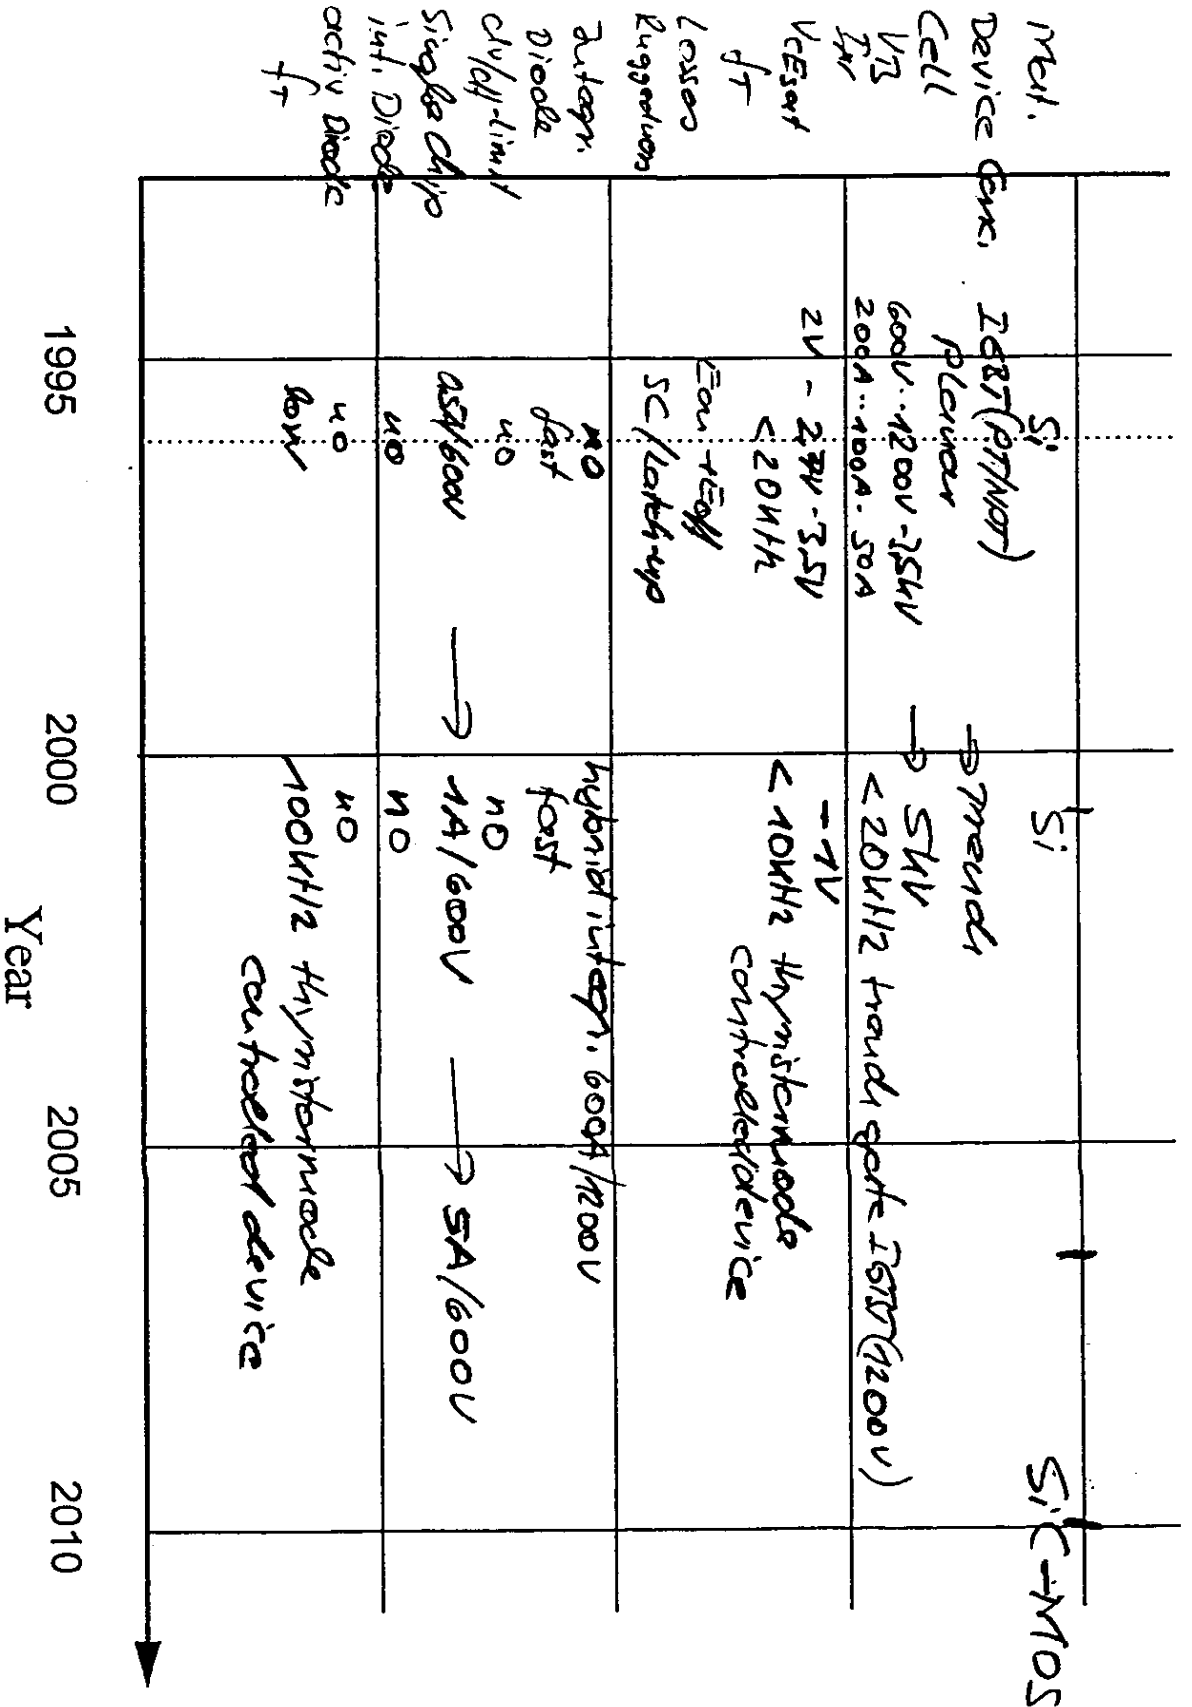 Mat. Si Si SiC-MOS
Device Conc. IGBT (PT/NPT)
Cell planar → Trench
VB 600V..1200V - 3,5kV → 5kV
200A..100A. 50A < 20kHz trench gate IGBT (1200V)
VCEsat 2V - 2,7V - 3,5V -1V
fT < 20kHz < 10kHz thyristormode
controlled device
Losses Eon + Eoff
Ruggedness SC/Latch-up
Integr. no hybrid integr. 600A/1200V
Diode fast fast
dv/dt-limit no no
Single Chip 0.5A/600V → 1A/600V → 5A/600V
int. Diode no no
activ Diode no no
fT low 100kHz thyristormode
controlled device
1995 2000 2005 2010
Year